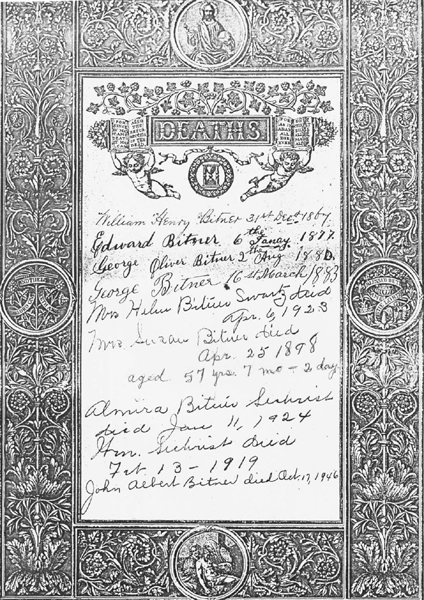 DEATHS
William Henry Bitner 31st Dec. 1867
Edward Bitner 6th Janay 1877
George Oliver Bitner 2th Aug 1880.
George Bitner 16st March 1883
Mrs Helen Bitner Swartz died
Apr. 6, 1923
Mrs. Suzan Bitner died
Apr. 25 1898
aged 57 yrs. 7 mo - 2 day
Almira Bitner Sechrist
died Jan 11, 1924
Wm. Sechrist died
Feb 13 - 1919
John Albert Bitner died Oct. 17, 1946